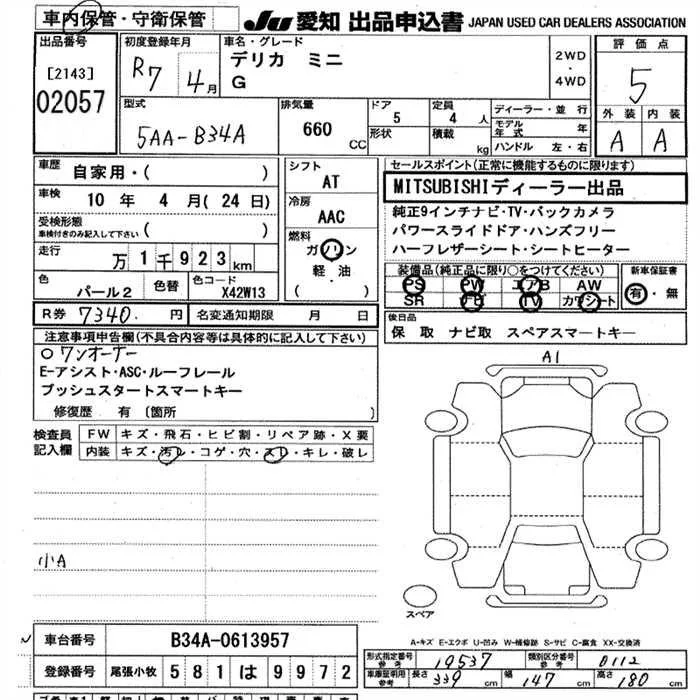 車内保管・守衛保管
JU 愛知 出品申込書 JAPAN USED CAR DEALERS ASSOCIATION
出品番号
[2143]
02057
初度登録年月
R7 4月
車名・グレード
デリカ ミニ
G
2WD
・
4WD
評価点
5
外装 内装
A A
型式
5AA-B34A
排気量
660 CC
ドア
5
形状
定員
4 人
積載
kg
ディーラー・並行
モデル年式 年
ハンドル 左・右
車歴 自家用・( )
車検 10年 4月(24日)
受検形態
車検付きのみ記入して下さい ( )
走行 万1千923km
色 パール2
色替
色コード X42W13
シフト
AT
冷房
AAC
燃料
ガソリン
軽・油
( )
セールスポイント(正常に機能するものに限ります)
MITSUBISHIディーラー出品
純正9インチナビ・TV・バックカメラ
パワースライドドア・ハンズフリー
ハーフレザーシート・シートヒーター
装備品(純正品に限り○をつけてください)
PS PW エアB AW
SR ナビ TV カワシート
新車保証書
有・無
R券 7340円 名変通知期限 月 日
後日品
保 取 ナビ取 スペアスマートキー
注意事項申告欄(不具合内容等は具体的に記入して下さい)
○ワンオーナー
E-アシスト・ASC・ルーフレール
プッシュスタートスマートキー
修復歴 有 (箇所 )
検査員記入欄
FW キズ・飛石・ヒビ割・リペア跡・X要
内装 キズ・汚レ・コゲ・穴・スレ・キレ・破レ
小A
A1
スペア
A-キズ E-エクボ U-凹み W-補修跡 S-サビ C-腐食 XX-交換済
車台番号 B34A-0613957
登録番号 尾張小牧 581 は 9972
形式指定番号 参考 19537 類別区分番号 参考 0112
車庫証明用 参考 長さ 339 cm 幅 147 cm 高さ 180 cm